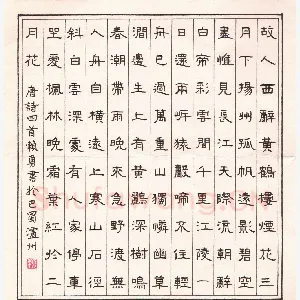 故人西辭黃鶴樓煙花三
月下揚州孤帆遠影碧空
盡惟見長江天際流朝辭
白帝彩雲間千里江陵一
日還兩岸猿聲啼不住輕
舟已過萬重山獨憐幽草
澗邊生上有黃鸝深樹鳴
春潮帶雨晚來急野渡無
人舟自橫遠上寒山石徑
斜白雲深處有人家停車
坐愛楓林晚霜葉紅於二
月花 唐詩四首賴勇書於巴蜀瀘州